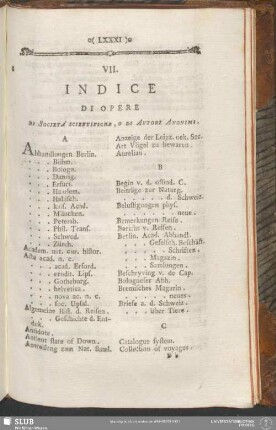 ( LXXXI )
VII.
INDICE
DI OPERE
DI SOCIETÀ SCIENTIFICHE, O DI AUTORI ANONIMI.
A
Abhandlungen Berlin.
. . . . Böhm.
. . . . Bologn.
. . . . Danzig.
. . . . Erfurt.
. . . . Hausfem.
. . . . Hallisch.
. . . . kof. Aond.
. . . . München.
. . . . Petersb.
. . . . Phil. Trans.
. . . . Schwed.
. . . . Zürch.
Academ. nat. cur. histor.
Acta acad. n. c.
. . . . acad. Erford.
. . . . erudit. Lips.
. . . . Gothoburg.
. . . . helvetica.
. . . . nova ac. n. c.
. . . . soc. Upsal.
Algemeine Hist. d. Reisen.
. . . . Geschichte d. Entdek.
Antidote.
Antient state of Down.
Anweisung een Nat. Saml.
Anzeige der Leipz. oek. Soc.
Art Vögel zu bewaren.
Aurelian.
B
Begin v. d. oftind. C.
Beiträge zur Naturg.
. . . . d. Schweiz.
Belustigungen phys.
. . . . neue.
Bemerkungen Reise.
Bericht v. Reisen.
Berlin. Acad. Abhandl.
. . . . Gesellsch. Beschäft.
. . . . Schriften.
. . . . Magazin.
. . . . Samlungen.
Beschryving v. de Cap.
Bologneser Abh.
Bremisches Magazin.
. . . . neues.
Briefe a. d. Schweiz.
. . . . über Tiere.
C
Catalogus system.
Collection of voyages.
SLUB